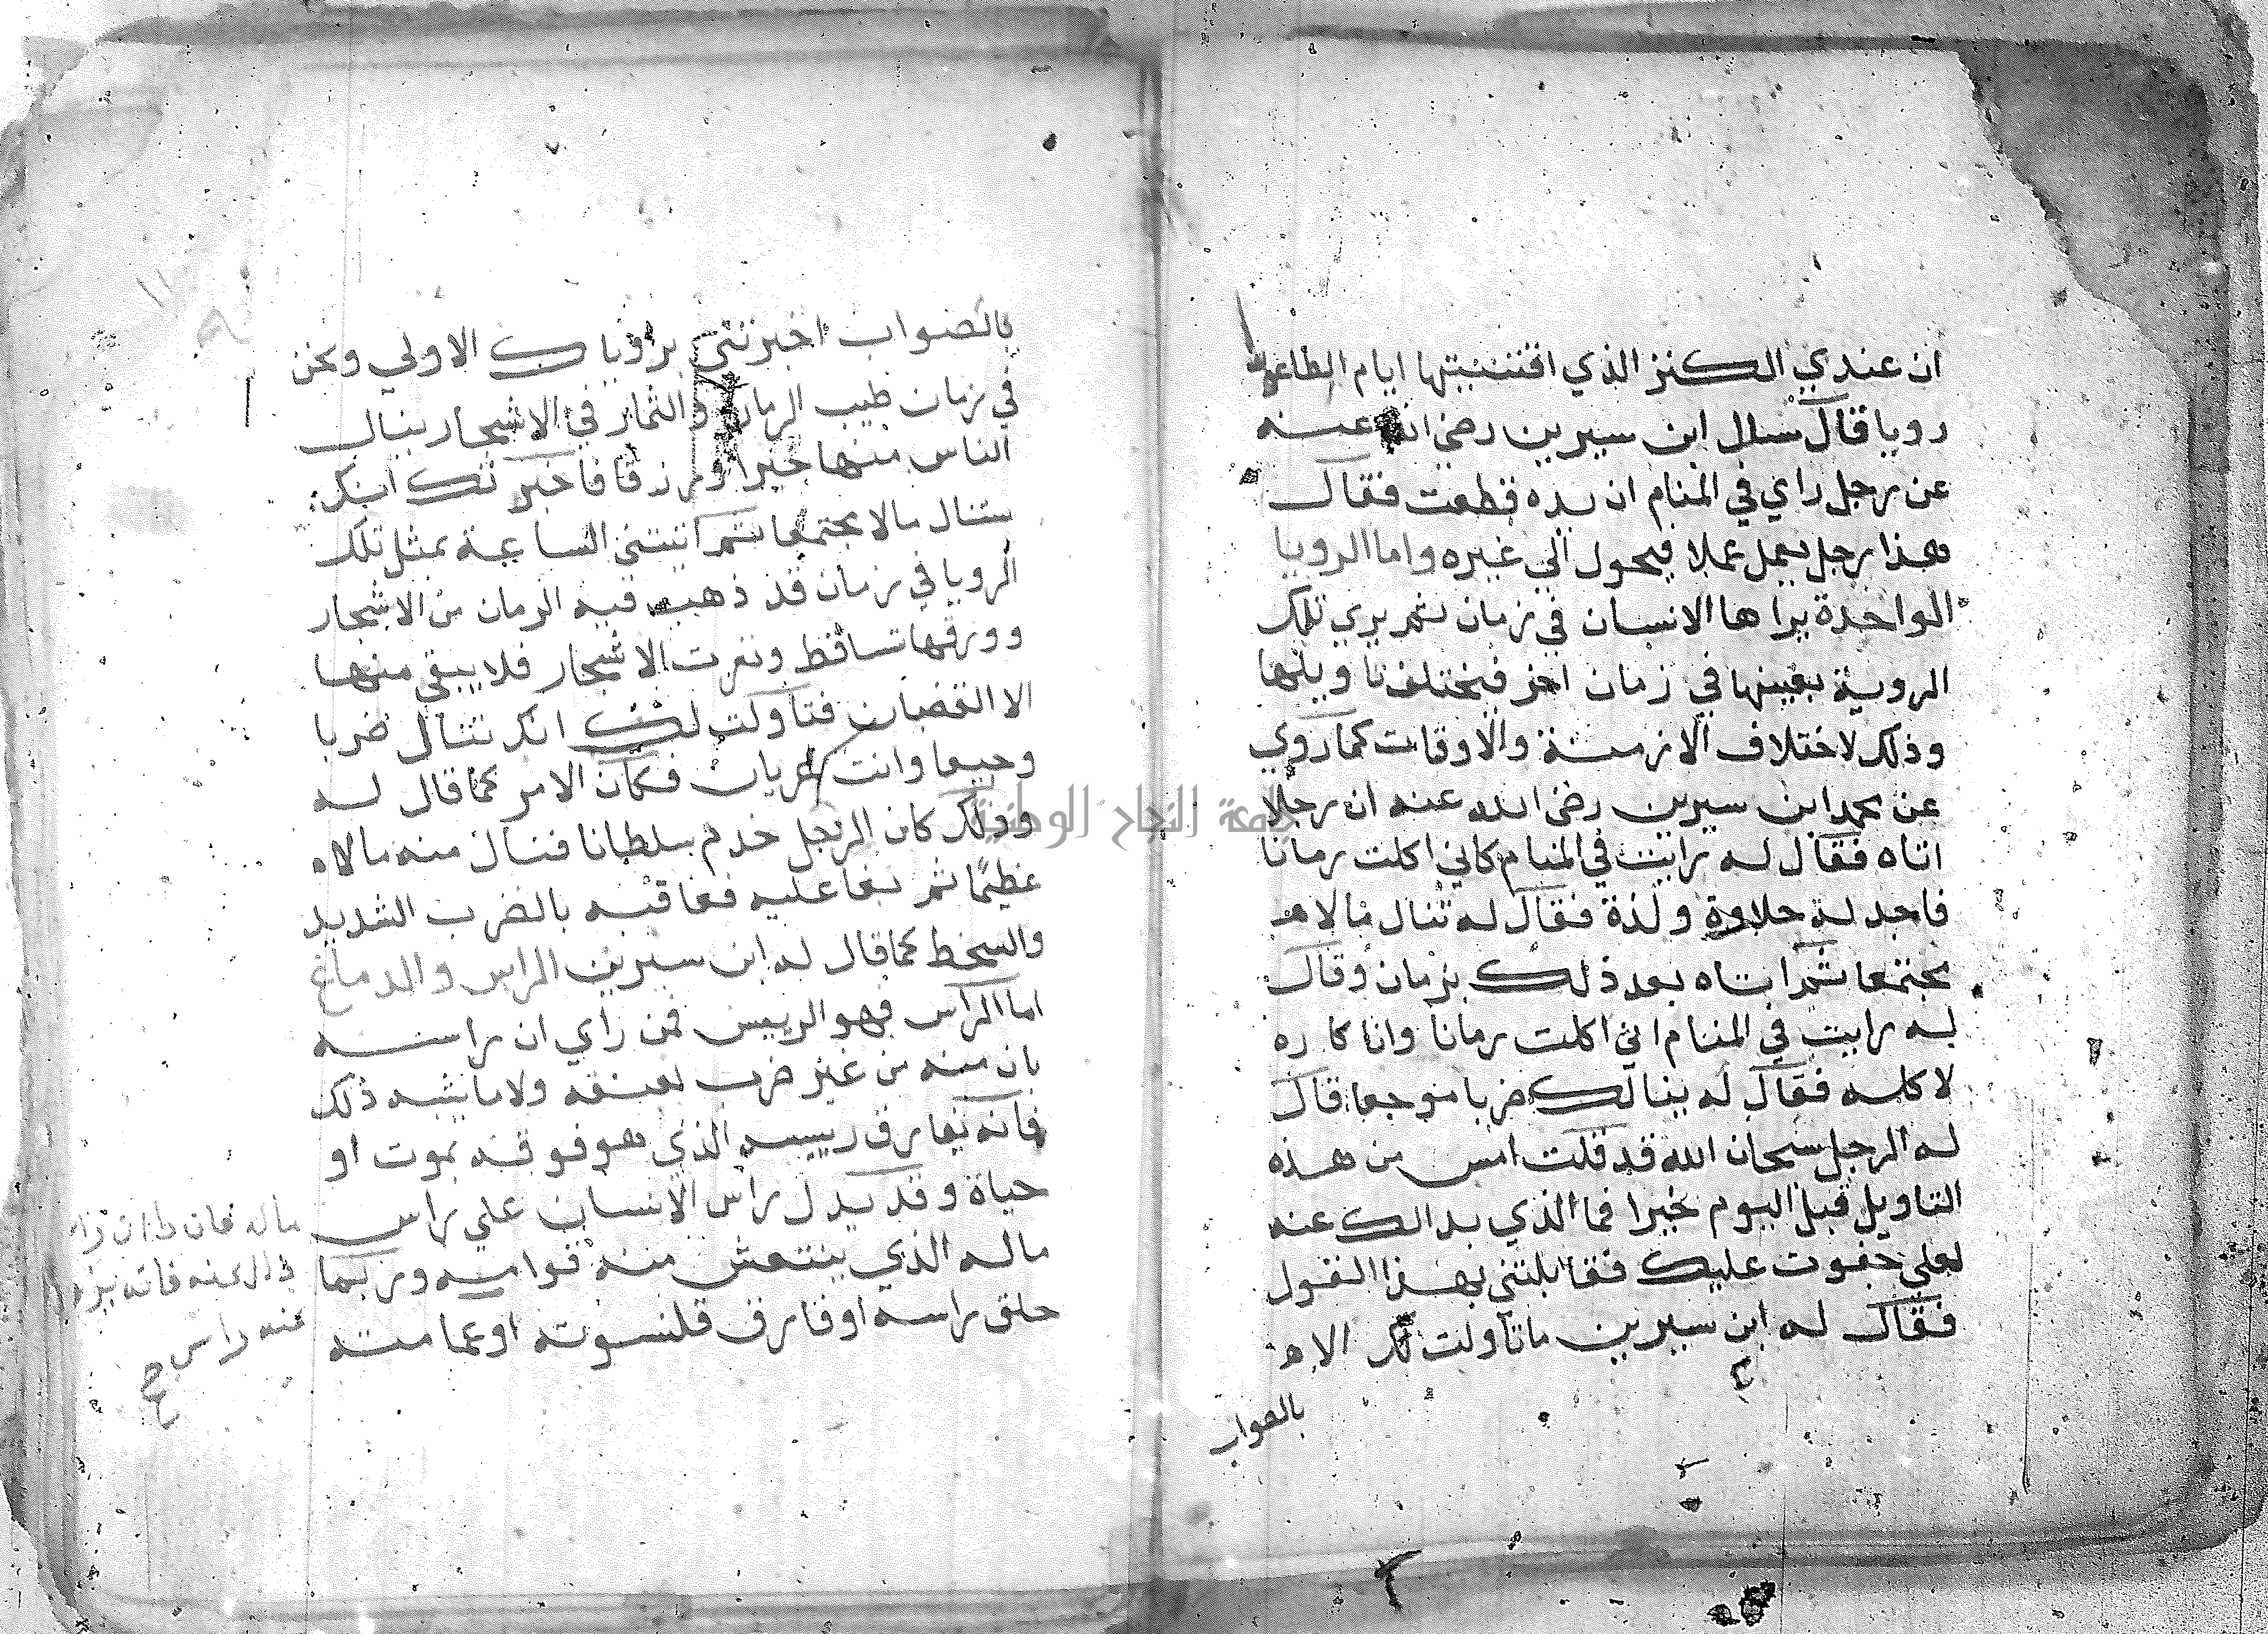 ان عندي الكنز الذي اقتنيتها ايام الطاعه
رويا قال سئل ابن سيرين رضي الله عنه
عن رجل راي في المنام ان يده قطعت فقال
هذا رجل يعمل عملا فيحول الي غيره واما الرويا
الواحدة يراها الانسان في زمان ثم يري تلك
الروية بعينها في زمان اخر فيختلف تاويلها
وذلك لاختلاف الازمنة والاوقات كما روي
عن محمد ابن سيرين رضي الله عنه ان رجلا
اتاه فقال له رايت في المنام كاني اكلت رمانا
فاجد له حلاوة ولذة فقال له تنال مالا
مجتمعا ثم اتاه بعد ذلك بزمان وقال
له رايت في المنام اني اكلت رمانا وانا كاره
لاكله فقال له ينالك ضربا موجعا قال
له الرجل سبحان الله قد قلت امس من هذه
التاويل قبل اليوم خيرا فما الذي بدالك عنه
لعلي جفوت عليك فقابلتني بهذا القول
فقال له ابن سيرين ما تاولت لك الا
بالصواب
بالصواب اخبرتني بروياك الاولي ونحن
في زمان طيب الرمان والثمار في الاشجار ينال
الناس منها خيرا ورزقا فاخبرتك انك
ستنال مالا مجتمعا ثم اتيتني الساعة بمثل تلك
الرويا في زمان قد ذهب فيه الرمان من الاشجار
وورقها تساقط وتعرت الاشجار فلا يبقي منها
الا القضبان فتاولت لك انك تنال ضربا
وجيعا وانت عريان فكان الامر كما قال له
وذلك كان الرجل خدم سلطانا فنال منه مالا
عظيما ثم بغا عليه فعاقبه بالضرب الشديد
والسخط كما قال له ابن سيرين الراس والدماغ
اما الراس فهو الرييس فمن راي ان راسه
بان منه من غير ضرب لعنقه ولا ما يشبه ذلك
فانه يفارق رييسه الذي هو فوقه بموت او
حياة وقد يدل راس الانسان علي راس
ماله الذي ينتعش منه قواميه وربما
حلق راسه او فارق قلنسوته او عمامته
ماله فان
ذلك عنه فانه
عنه راس
جامعة النجاح الوطنية